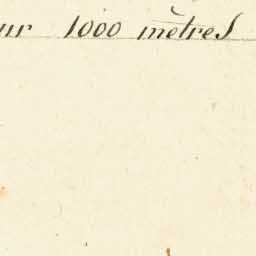 ur 1000 mètres